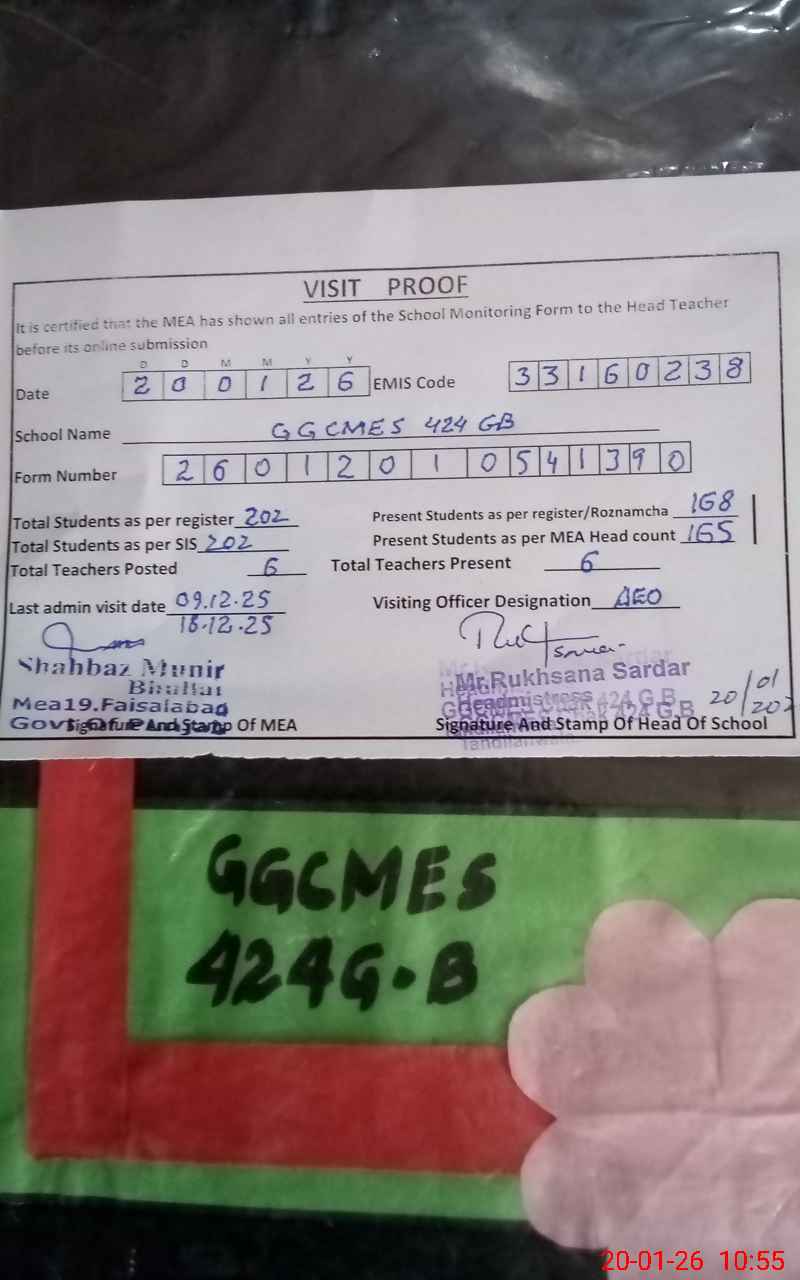 VISIT PROOF
It is certified that the MEA has shown all entries of the School Monitoring Form to the Head Teacher
before its online submission
D D M M Y Y
Date 2 0 0 1 2 6 EMIS Code 3 3 1 6 0 2 3 8
School Name GGCMES 424 GB
Form Number 2 6 0 1 2 0 1 0 5 4 1 3 9 0
Total Students as per register 202 Present Students as per register/Roznamcha 168
Total Students as per SIS 202 Present Students as per MEA Head count 165
Total Teachers Posted 6 Total Teachers Present 6
Last admin visit date 09.12.25 Visiting Officer Designation AEO
18.12.25
Shahbaz Munir
Mea19.Faisalabad
Mr.Rukhsana Sardar
Headmistress
424 G.B
20/01
Signature And Stamp Of MEA Signature And Stamp Of Head Of School
GGCMES
424G.B
20-01-26 10:55